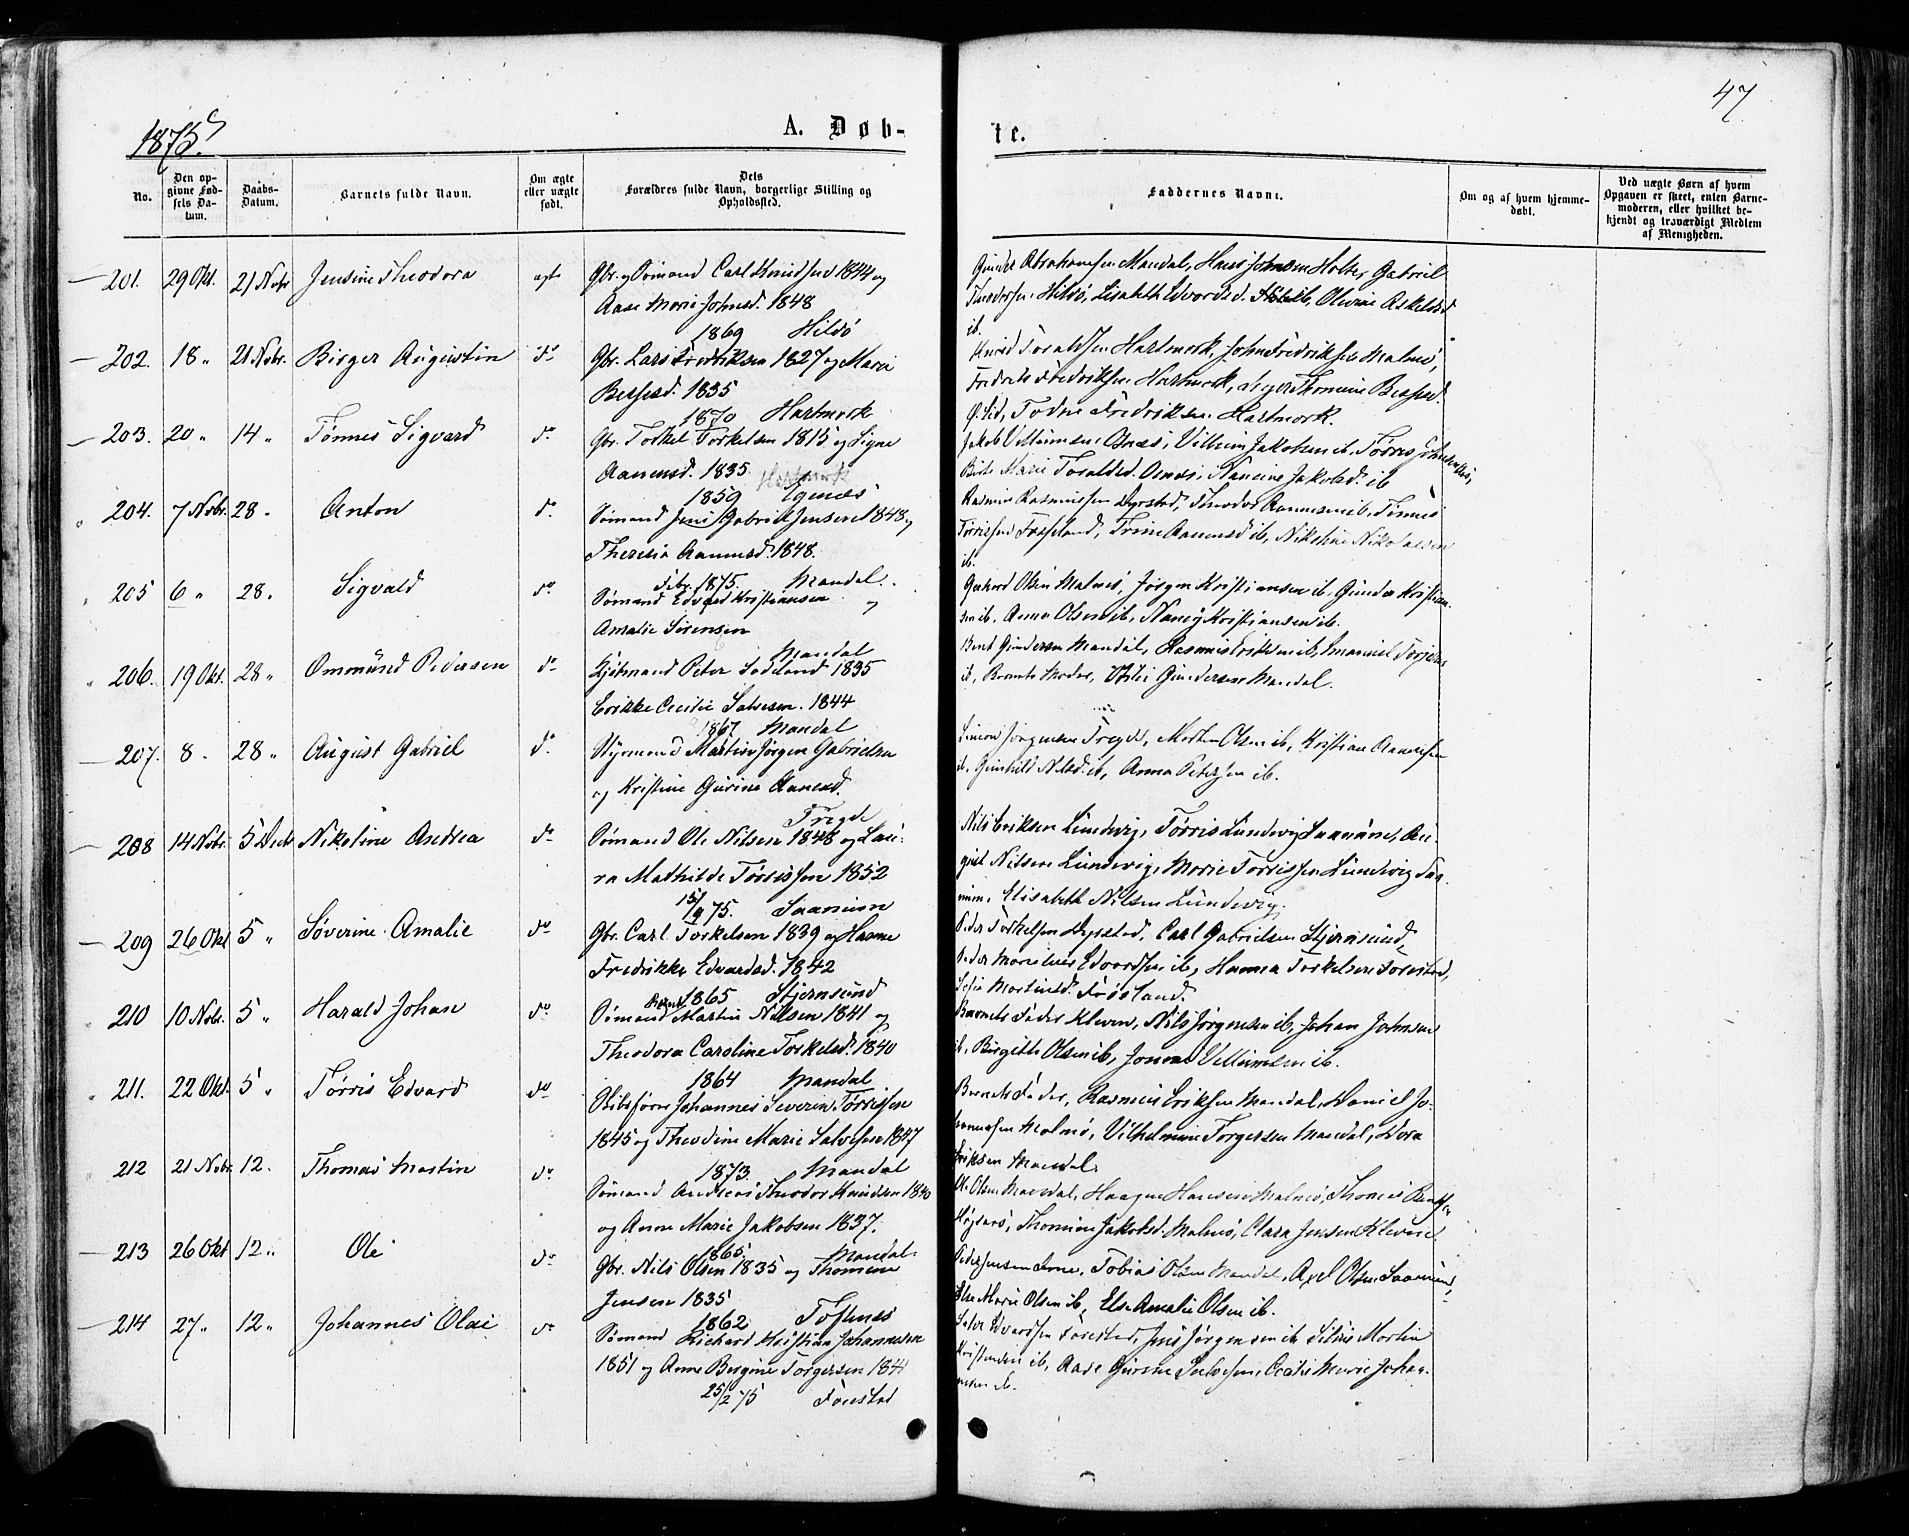 47
1875.
A. Døb-
te.
No.
Den op-
givne Fød-
sels Da-
tum.
Daabs-
Datum.
Barnets fulde Navn.
Om ægte
eller uægte
født.
Dets
Forældres fulde Navn, borgerlige Stilling og
Opholdssted.
Faddernes Navne.
Om og af hvem hjemme-
døbt.
Ved uægte Børn af hvem
Opgaven er skeet, enten Barne-
moderen, eller hvilket be-
kjendt og troværdigt Medlem
af Menigheden.
201. 29 Okt. 21 Nobr Jensine Theodora ægt Gbr. og Sømand Carl Knudsen 1844 og
Aase Marie Johnsd. 1848
1869 Hilsö
Gunder Abrahamsen Mandal, Hans Johnsen Holte, Gabriel
Theodorsen Hilsö, Lisabeth Edvardsd. ib, Olevine Askelsd
ib.
202. 18 " 21 Nobr. Birger Augustin do Gbr. Lars Fredriksen 1827 og Maria
Bersesd. 1835
1870 Hartmork
Toraldsen Hartmork, John Fredriksen Malmö,
Fredrik Fredriksen Hartmork,
Fredriksen Hartmork.
203. 20 " 14 " Tönnes Sigvard do Gbr. Torkel Torkelsen 1815 og Signe
Aanensd. 1835 Hartmork
1859 Egenæs
Jakob Villumsen Vilhelm Jakobsen ib, Tørres
Birte Marie Toraldsd. Nancine Jakobsd. ib
204. 7 Nobr. 28 " Anton do Sømand Jens Gabriel Jensen 1848 og
Theresia Aanensd. 1848.
Febr 1875. Mandal.
Rasmus Rasmussen Dyrstad, Theodor Aanensen ib, Tönnes
Tørrissen Fasseland, Trine Aanensd ib, Nikoline Nikolaisen
ib.
205 6 " 28 " Sigvald do Sømand Edvard Kristiansen og
Amalie Sørensen
Mandal
Gerhard Olsen Malmö, Jörgen Kristiansen ib, Gunder Kristian-
sen ib, Anna Olsen ib, Nancy Kristiansen ib.
206. 19 Okt. 28 " Ommund Pedersen do Kjøbmand Peter Sodeland 1835
Erikke Cecilie Salvesen. 1844
1867 Mandal
Bent Gundersen Mandal, Rasmus Eriksen ib, Emanuel
ib, Barnets Moder, Gundersen Mandal.
207. 8 " 28 " August Gabriel do Styrmand Martin Jörgen Gabrielsen
og Kristine Gurine Aanensd.
Tregde
Simon Jörgensen Tregde, Morten Olsen ib, Kristian Aanensen
ib, Gunhild Nilsd. ib, Anna Petersen ib.
208 14 Nobr. 5 Decbr Nikoline Andrea do Sømand Ole Nilsen 1848 og Lau-
ra Mathilde Tørrissen 1852
15/9 75. Saanum
Nils Eriksen Lundevig, Tørris Lundevig Saanum, Au-
gust Nilsen Lundevig, Marie Tørrissen Lundevig Saa-
num, Elisabeth Nilsen Lundevig.
209 26 Okt 5 " Søverine Amalie do Gbr. Carl Torkelsen 1839 og Hanne
Fredrikke Edvardsd. 1842
1865 Stjernsund
Peder Torkelsen Dyrstad, Carl Gabrielsen Stjernsund,
Peder Edvardsen ib, Hanna Torkelsen Forestad,
Sofie Martinsd. Frösland.
210 10 Nobr. 5 " Harald Johan do Sømand Martin Nilsen 1841 og
Theodora Caroline Torkelsd. 1840
1864 Mandal
Barnets Fader Kleven, Nils Jörgensen ib, Johan Johnsen
ib, Birgith Olsen ib, Villumsen ib.
211. 22 Okt. 5 " Tørris Edvard do Skibsfører Johannes Severin Tørrissen
1845 og Theodine Marie Salvesen 1847
1873. Mandal
Barnets Fader, Rasmus Eriksen Mandal, Daniel Jo-
hannessen Malmö, Vilhelmine Torgersen Mandal, Dora
Eriksen Mandal.
212 21 Nobr. 12. Thomas Martin do Sømand Andreas Theodor Knudsen 1840
og Anne Marie Jakobsen 1837.
1865. Mandal
Ole Olsen Mandal, Haagen Hansen Malmö, Thomas
Thomine Jakobsd. Malmö, Clara Jensen Kleven.
213 26 Okt 12 " Ole do Gbr. Nils Olsen 1835 og Thomine
Jensen 1835
1862 Toftenes
Peder Jensen Tobias Olsen Mandal, Axel Olsen Saanum,
Else Marie Olsen ib, Else Amalie Olsen ib.
214 27 " 12 " Johannes Olai do Sømand Richard Kristian Johannesen
1851 og Anne Bergine Torgersen 1841
25/2 75 Forestad
Salve Edvardsen Forestad, Jens Jörgensen ib Martin
Kristensen ib, Aase Gurine Salvesen, Cecilie Marie Johan-
nesen ib.